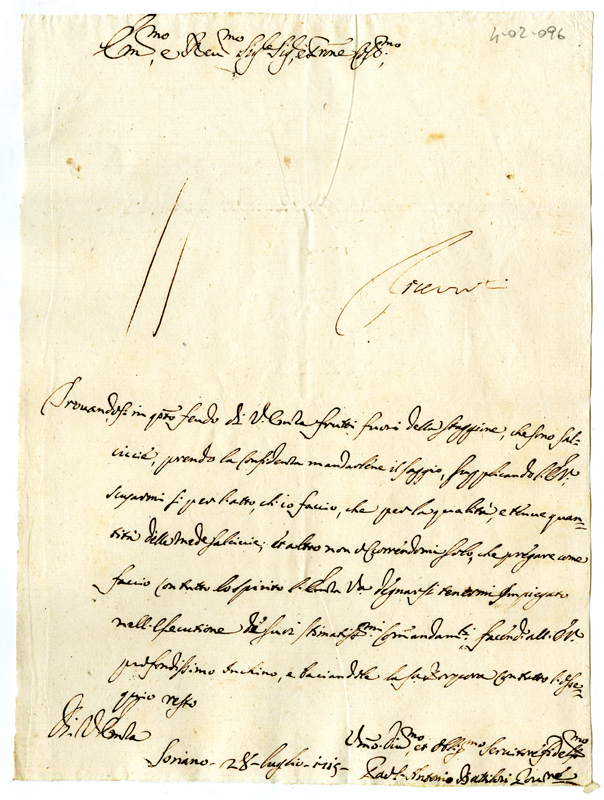 4-02-096
Em.mo, e Reu.mo Sig.re Sig.re, e Prne Col.mo
Riceuut
Trouandosi in q.sto feudo di V. Emza frutti fuori della staggione, che sono sal-
ciccie, prendo la confidenza mandarlene il saggio, supplicando l'E.V.
scusarmi si per l'atto, ch'io faccio, che per la qualità, e tenue quan=
tità delle med.e salciccie; et altro non occorrendomi solo, che pregare come
faccio con tutto lo spirito l'Emza V.a degnarsi tenermi impiegato
nell'esecutione de suoi stimatiss.mi comandam.ti, facendo all'E.V.
profondissimo inchino, e baciandole la sacra porpora con tutto l'osse=
quio resto
Di V. Emza
Soriano - 28 - luglio - 1715 -
Vmo. Diu.mo, et Obblig.mo Seruitore fidel.mo
Antonio